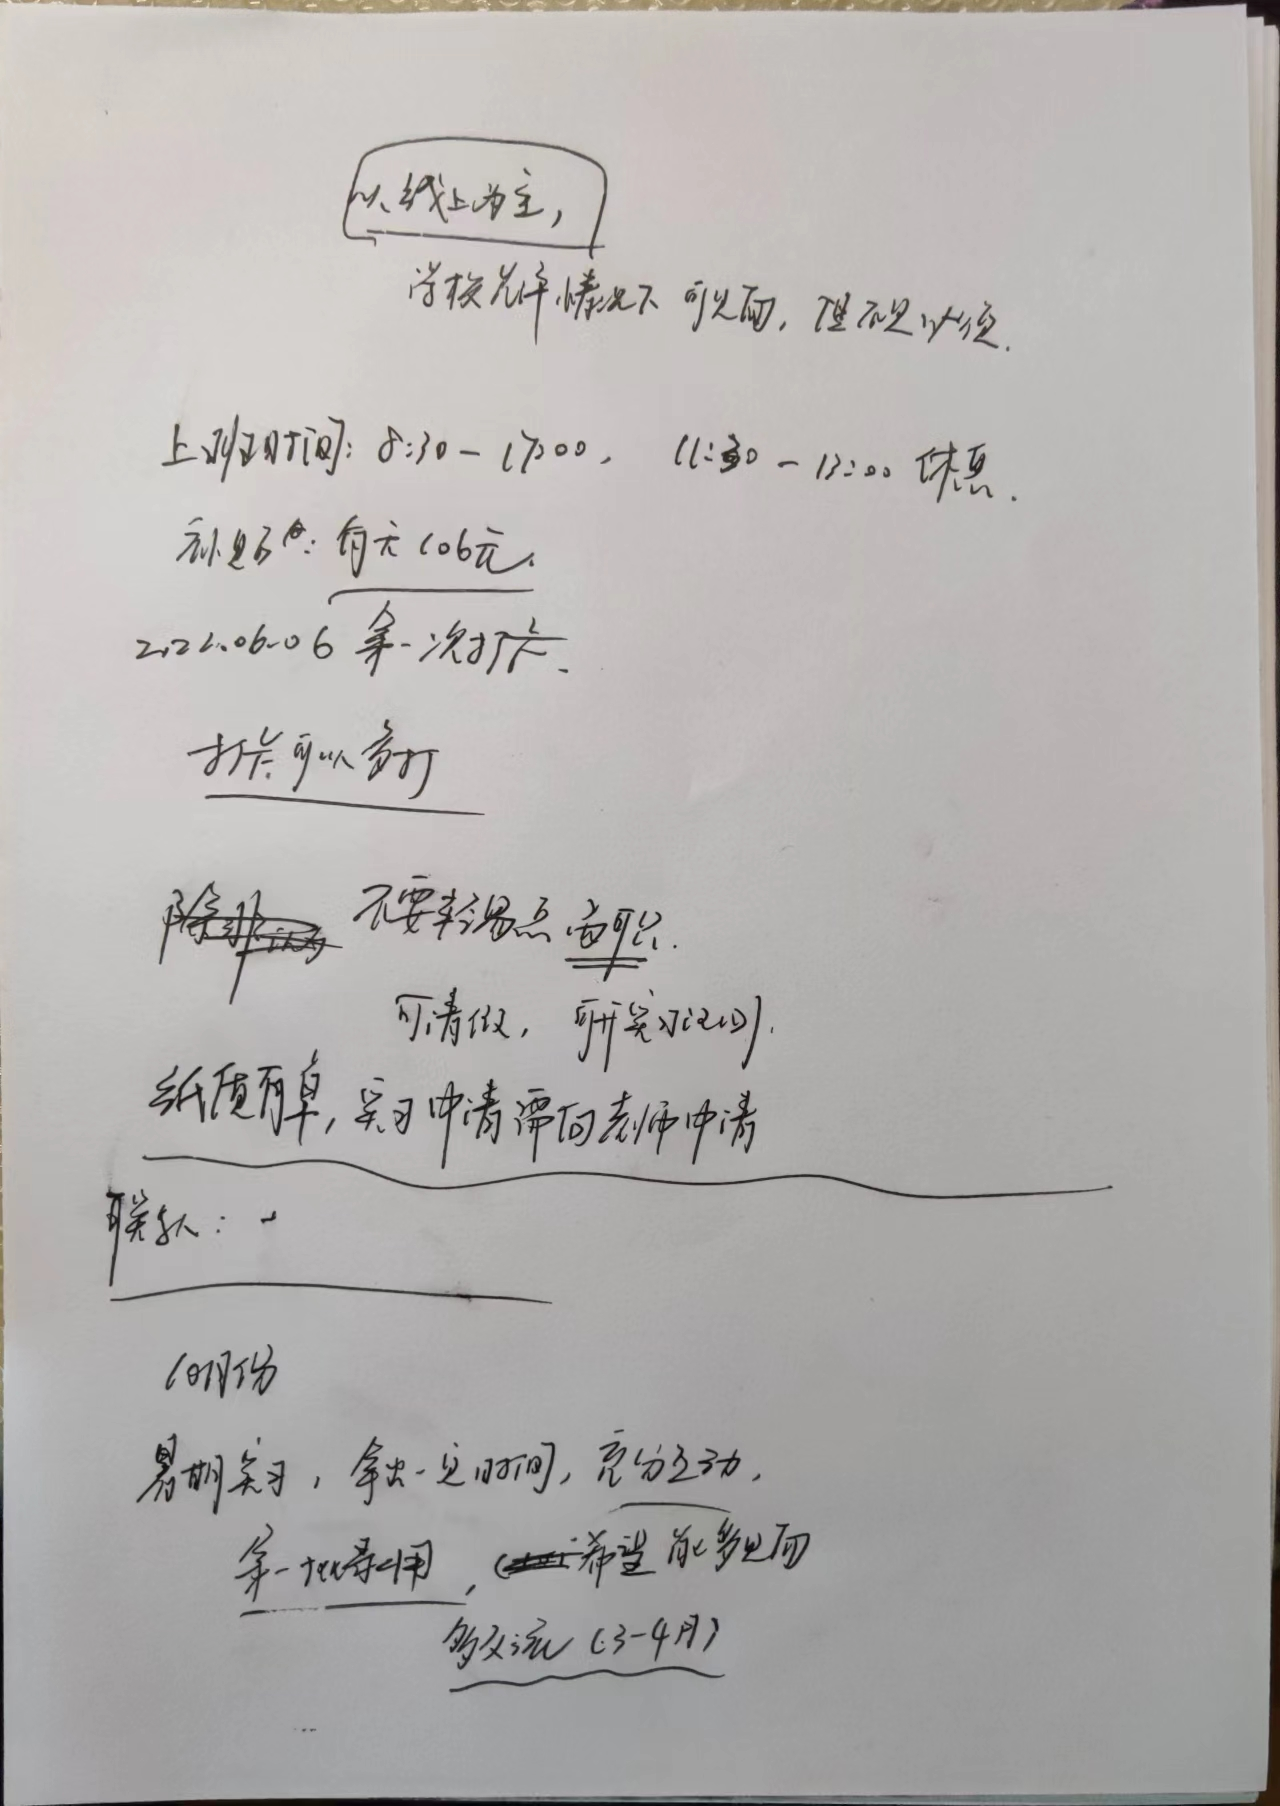 以线上为主,
学校允许情况下可见面,但不是必须.
上班时间: 8:30-17:00, 11:30-13:00 休息.
补贴: 每天106元.
2022.06.06 第一次打卡.
打卡可以多打
除非 不要轻易点离职.
可请假, 可开实习证明.
纸质简单,实习申请需向老师申请
联系人:
10月份
暑期实习, 拿出一定时间, 充分互动,
第一批录用, 希望能多见面
多交流 (3-4月)